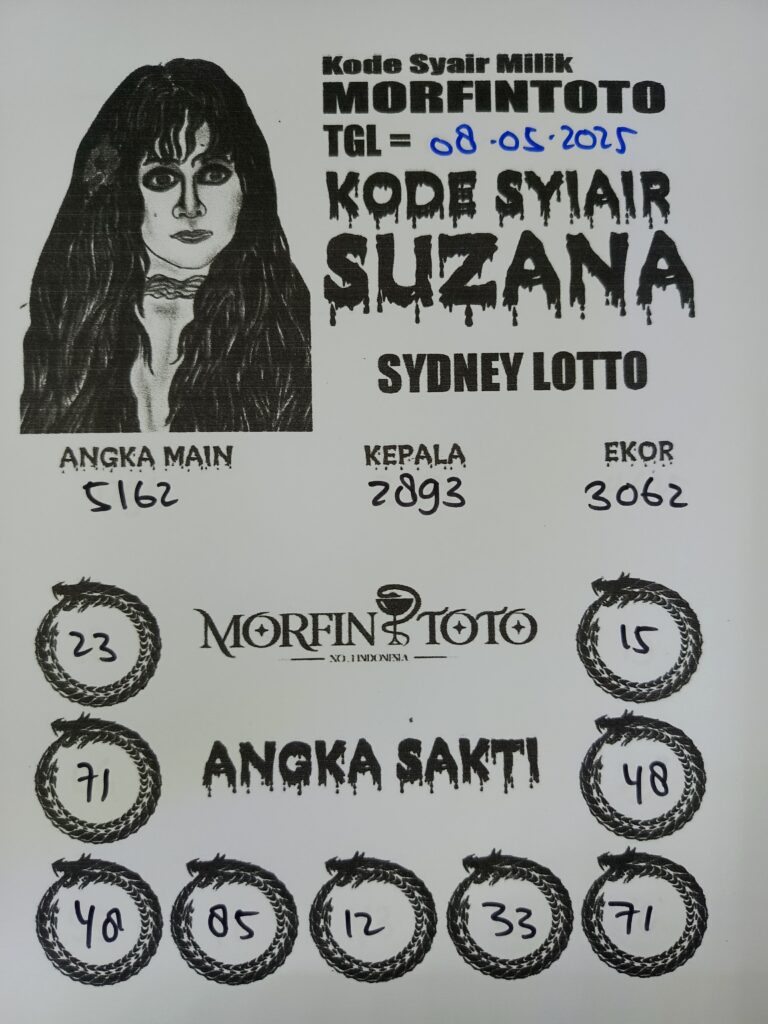 Kode Syair Milik
MORFINTOTO
TGL = 08.05.2025
KODE SYIAIR
SUZANA
SYDNEY LOTTO
ANGKA MAIN KEPALA EKOR
5162 2893 3062
MORFIN TOTO
NO.1 INDONESIA
23 15
ANGKA SAKTI
71 48
48 85 12 33 71